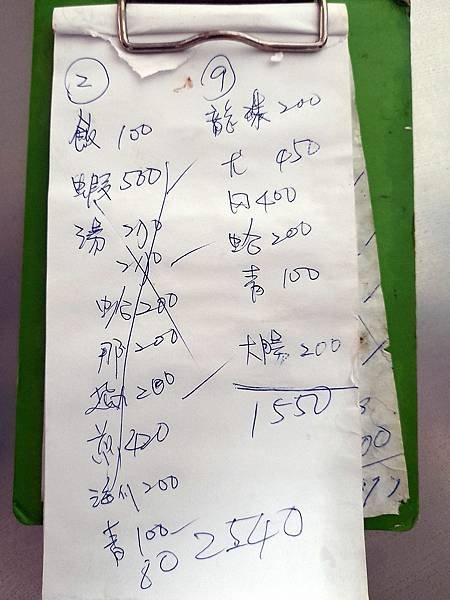 ②
飯 100
蝦 500
湯 270
270
蛤 200
那 200
200
煎 420
200
青 100
80 2540
⑨
龍珠 200
尤 450
400
蛤 200
青 100
大腸 200
1550